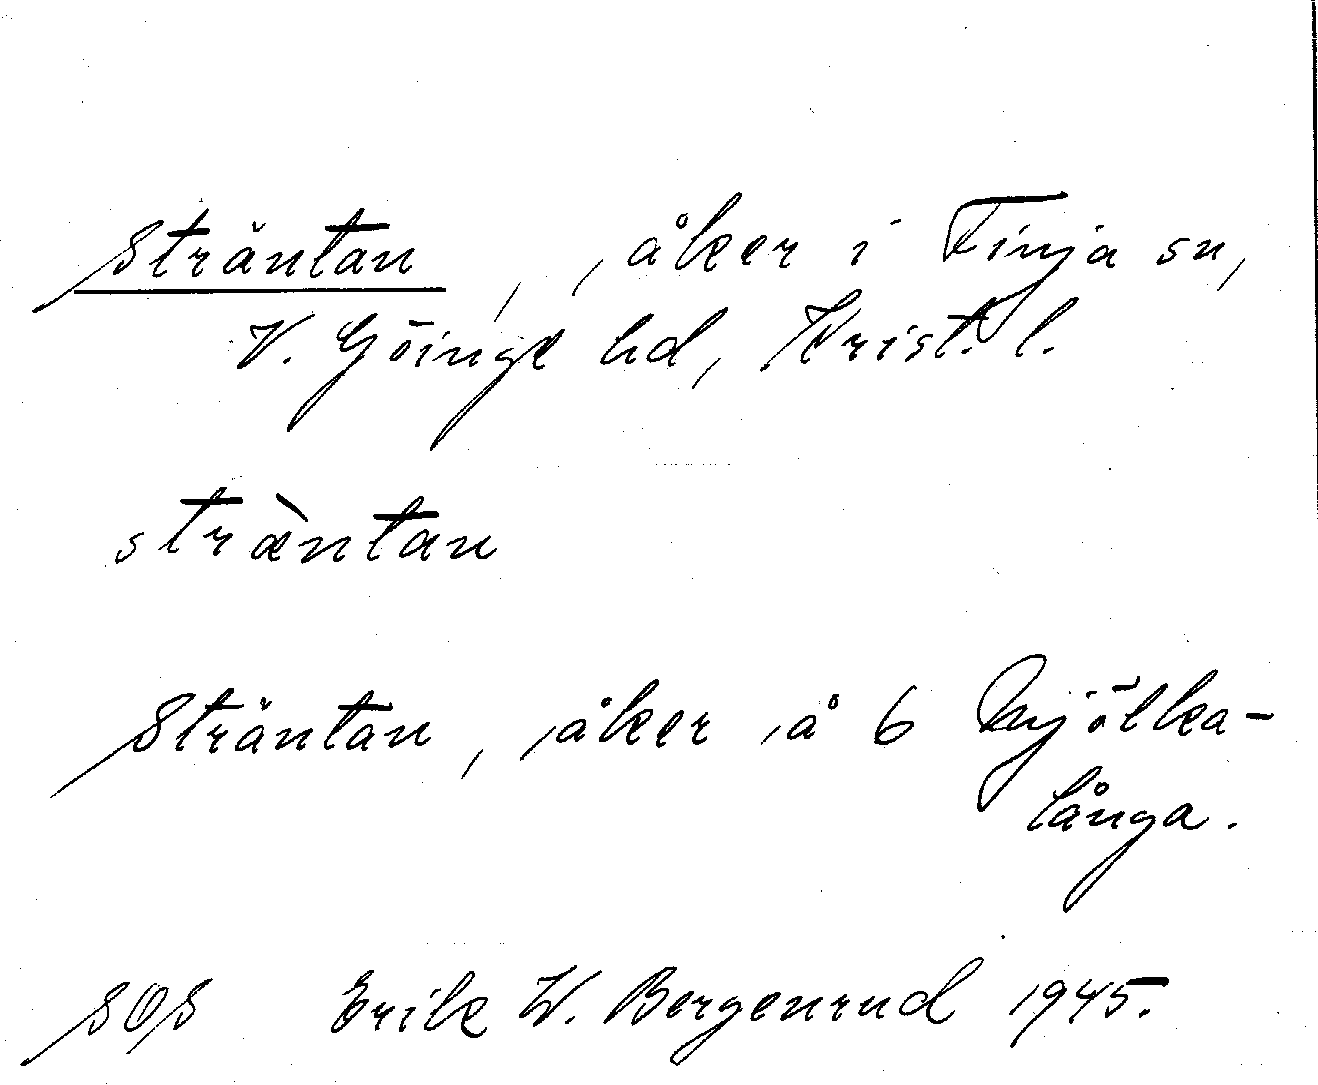 Sträntan, åker i Finja sn,
V. Göinge hd, Krist. l.
stræ̀ntan
Sträntan, åker å 6 Mjölka-
långa.
SOS Erik W. Bergenrud 1945.